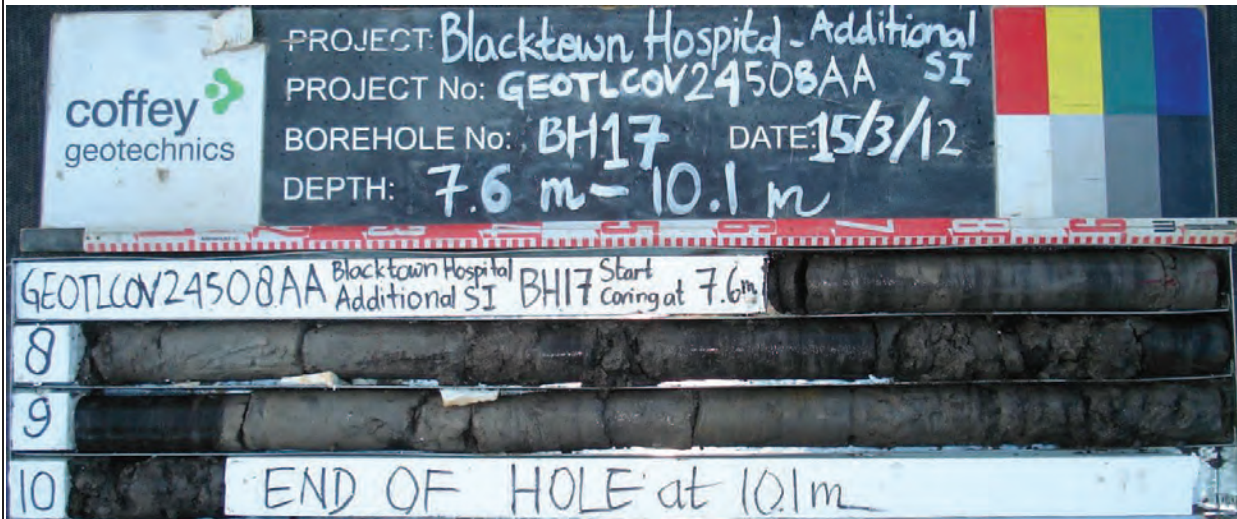 coffey
geotechnics
PROJECT: Blacktown Hospital - Additional SI
PROJECT No: GEOTLCOV24508AA
BOREHOLE No: BH17 DATE: 15/3/12
DEPTH: 7.6 m - 10.1 m
1 2 3 4 5 6 7 8 9
GEOTLCOV24508AA Blacktown Hospital Additional SI BH17 Start Coring at 7.6m
8
9
10 END OF HOLE at 10.1m